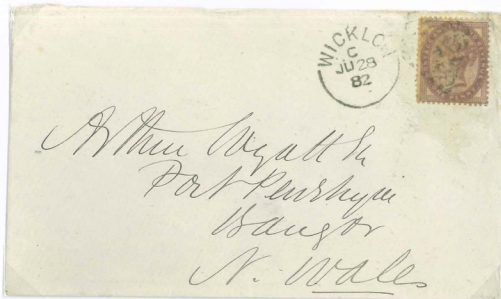 WICKLO
C
JU 28
82
Arthur Wyatt Sr
Port Penrhyn
Bangor
N. Wales